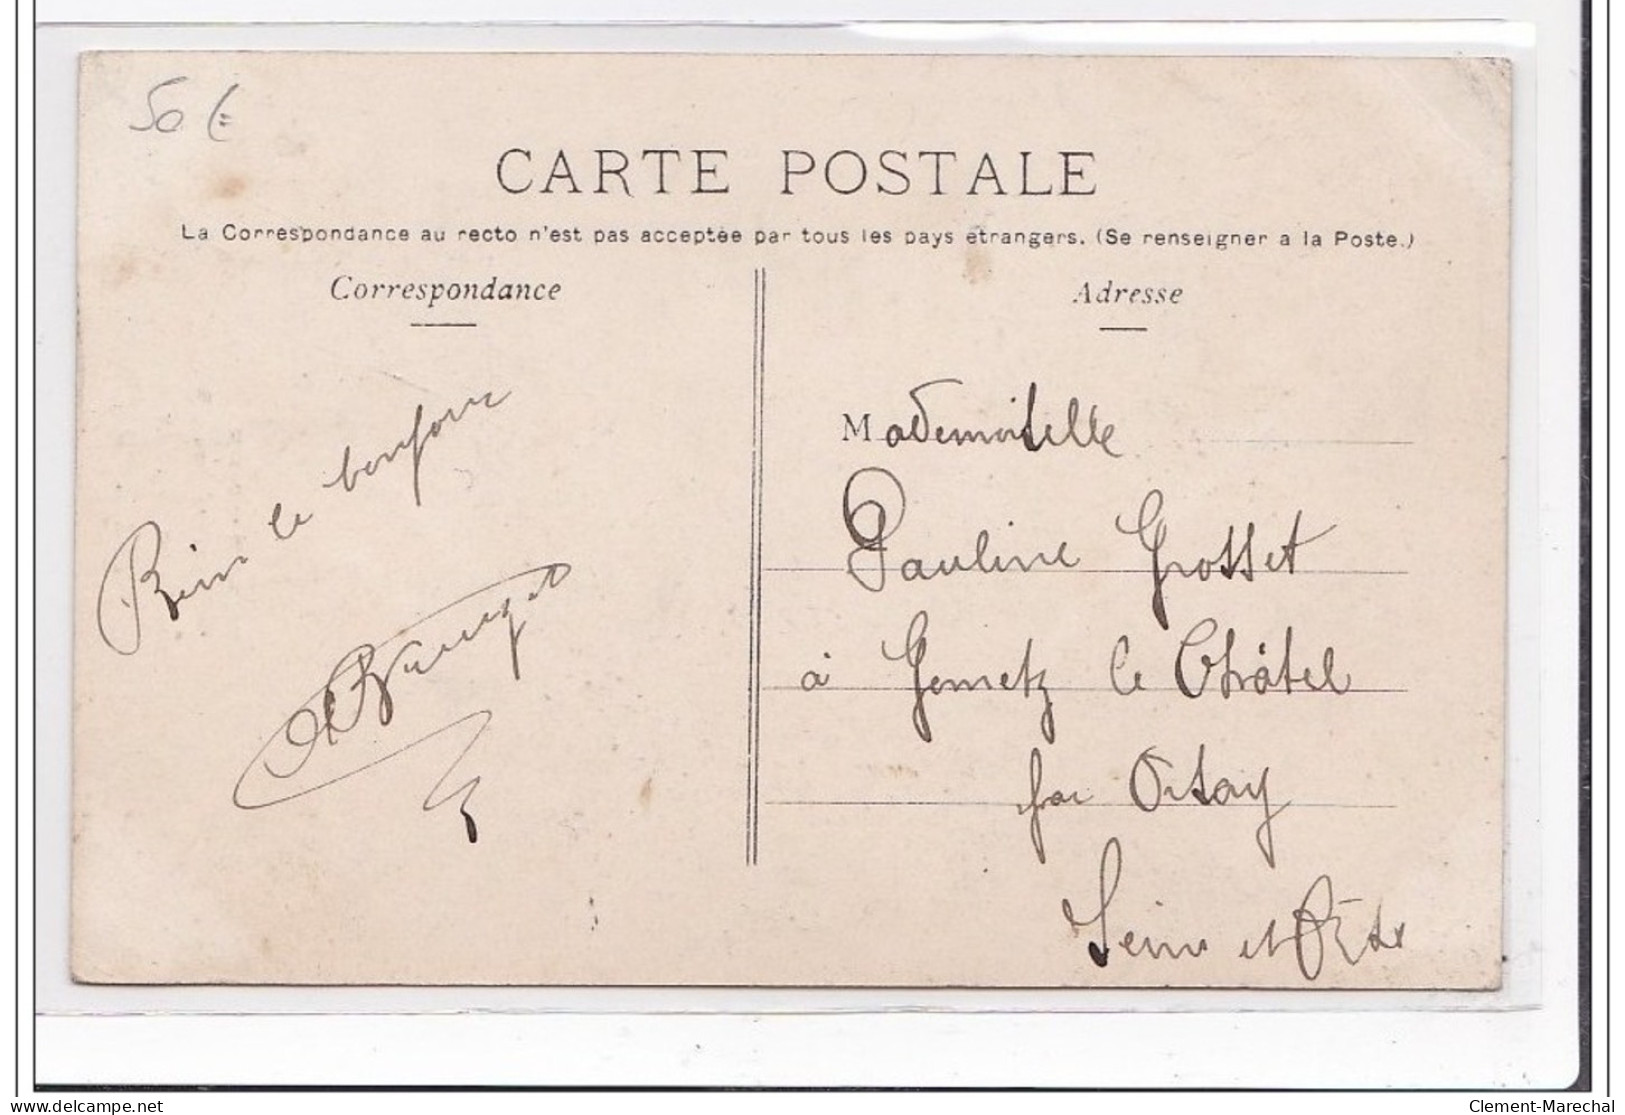 50 €
CARTE POSTALE
La Correspondance au recto n'est pas acceptée par tous les pays étrangers. (Se renseigner a la Poste.)
Correspondance
Bien le bonjour
Adresse
Mademoiselle
Pauline Grosset
à Gometz le Châtel
par Orsay
Seine et Oise
delcampe.net
Clement-Marechal